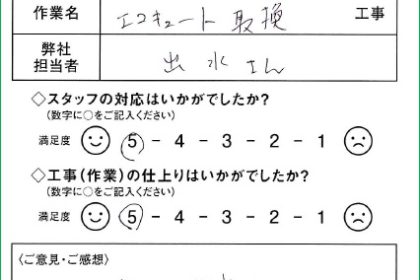 作業名 エコキュート取換 工事
弊社
担当者 出水さん
◇スタッフの対応はいかがでしたか?
(数字に○をご記入ください)
満足度 5 - 4 - 3 - 2 - 1
◇工事(作業)の仕上りはいかがでしたか?
(数字に○をご記入ください)
満足度 5 - 4 - 3 - 2 - 1
〈ご意見・ご感想〉